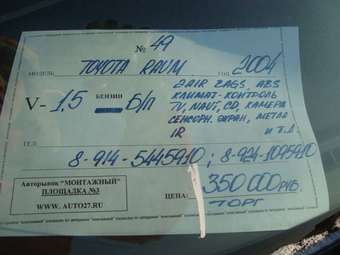 № 49
МОДЕЛЬ TOYOTA RAUM ГОД 2004
V- 1,5 БЕНЗИН Б/П
2 AIR BAGS, ABS
КЛИМАТ-КОНТРОЛЬ
TV, NAVI, CD, КАМЕРА
СЕНСОРН. ЭКРАН, МЕТЛА
1R И Т.Д
ТЕЛ
8-914-5445910 ; 8-924-1095910
Авторынок "МОНТАЖНЫЙ"
ПЛОЩАДКА №3
WWW. AUTO27.RU
ЦЕНА: 350 000 РУБ.
ТОРГ